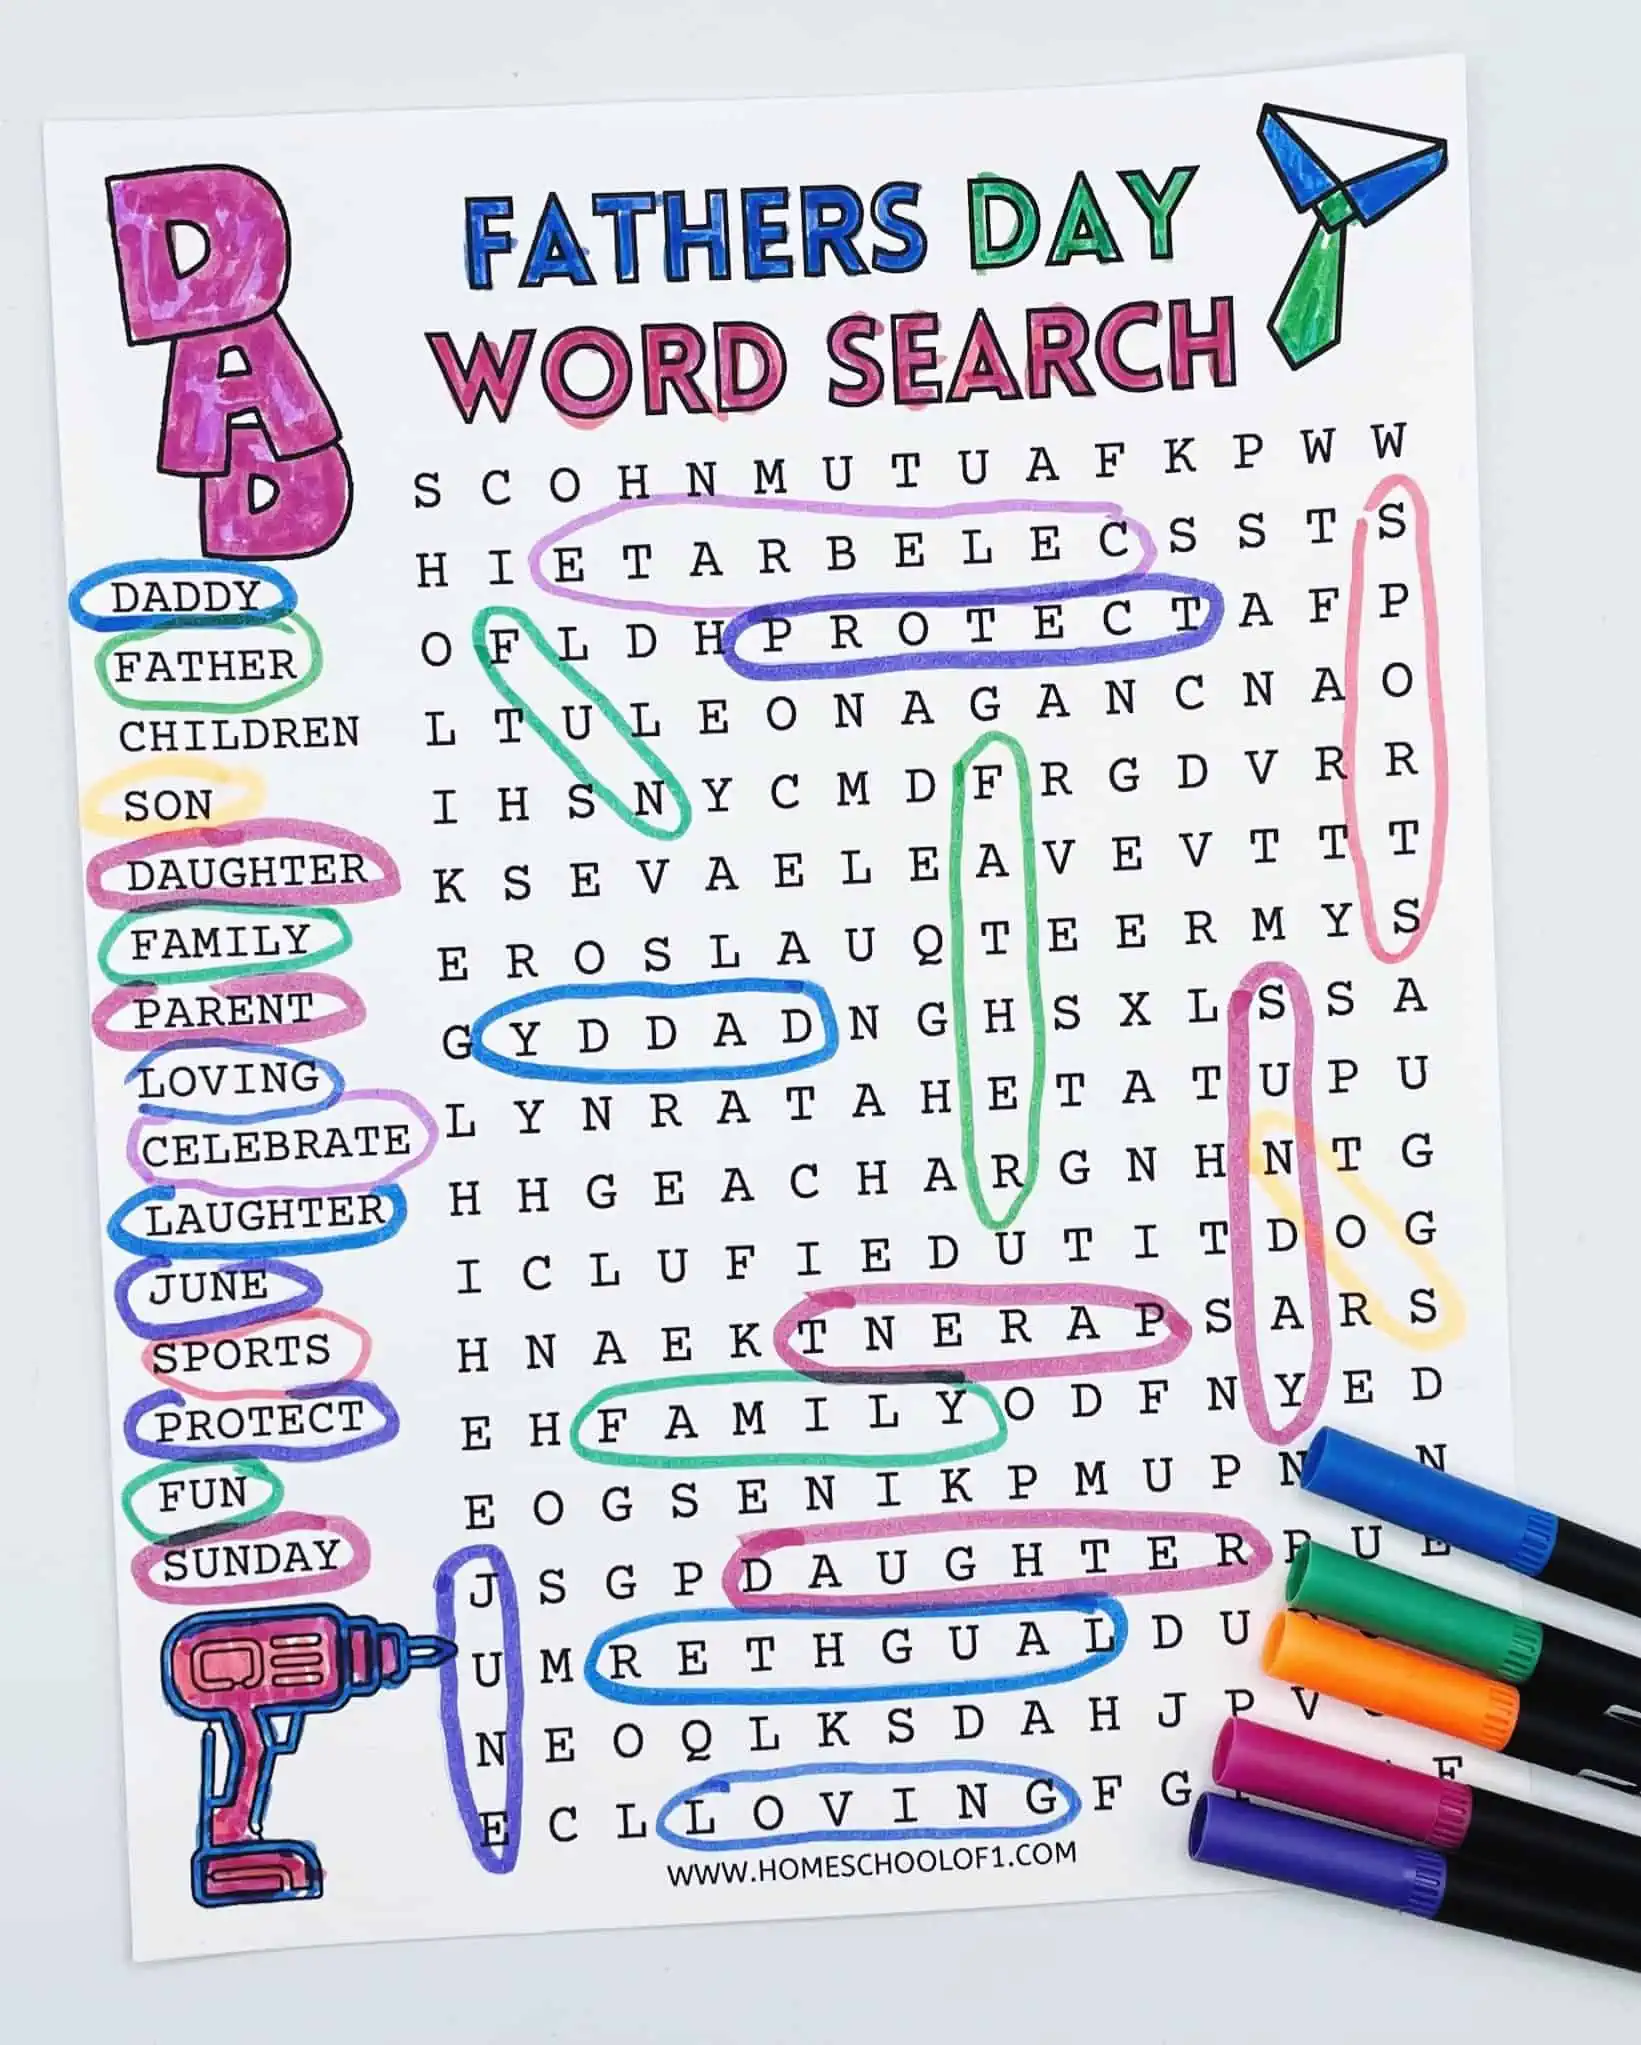 DAD
FATHERS DAY
WORD SEARCH
DADDY
FATHER
CHILDREN
SON
DAUGHTER
FAMILY
PARENT
LOVING
CELEBRATE
LAUGHTER
JUNE
SPORTS
PROTECT
FUN
SUNDAY
S C O H N M U T U A F K P W W
H I E T A R B E L E C S S T S
O F L D H P R O T E C T A F P
L T U L E O N A G A N C N A O
I H S N Y C M D F R G D V R R
K S E V A E L E A V E V T T T
E R O S L A U Q T E E R M Y S
G Y D D A D N G H S X L S S A
L Y N R A T A H E T A T U P U
H H G E A C H A R G N H N T G
I C L U F I E D U T I T D O G
H N A E K T N E R A P S A R S
E H F A M I L Y O D F N Y E D
E O G S E N I K P M U P N N
J S G P D A U G H T E R U E
U M R E T H G U A L D U
N E O Q L K S D A H J P V
E C L L O V I N G F G
WWW.HOMESCHOOLOF1.COM